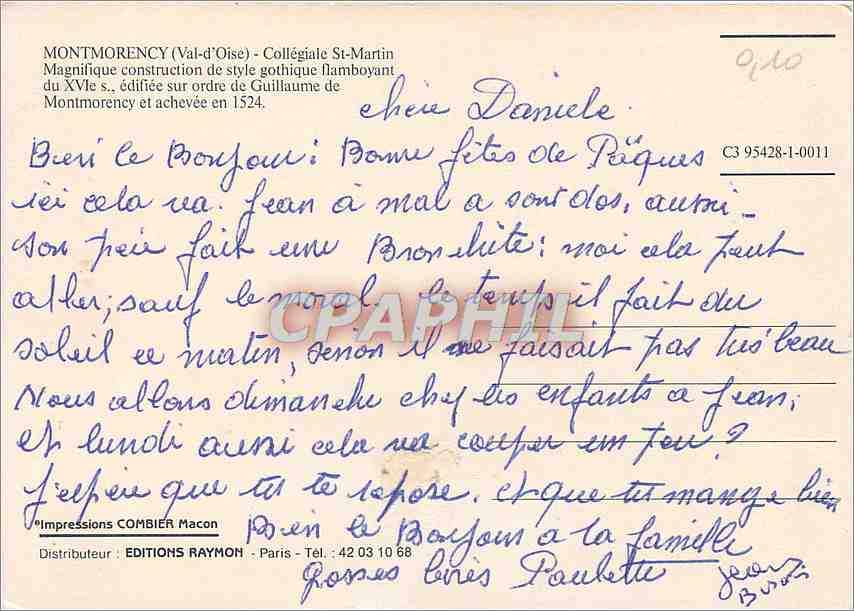 MONTMORENCY (Val-d'Oise) - Collégiale St-Martin
Magnifique construction de style gothique flamboyant
du XVIe s., édifiée sur ordre de Guillaume de
Montmorency et achevée en 1524.
0,10
C3 95428-1-0011
chère Danièle.
Bien le Bonjour: Bonne fêtes de Pâques
ici cela va. Jean à mal a sont dos, aussi
son père fait une Bronchite: moi cela peut
aller; sauf le moral. le temps il fait du
soleil ce matin, sinon il ne faisait pas très beau
Nous allons dimanche chez les enfants a Jean,
et lundi aussi cela va couper un peu?
J'espère que tu te repose. et que tu mange bien
Bien le Bonjour a la famille
Grosses bises Paulette Jean
CPAPHIL
*Impressions COMBIER Macon
Distributeur : EDITIONS RAYMON - Paris - Tél. : 42 03 10 68